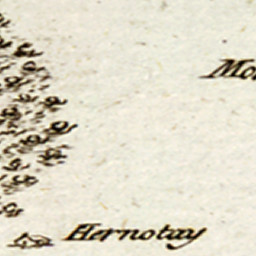 Mo
Hernotay